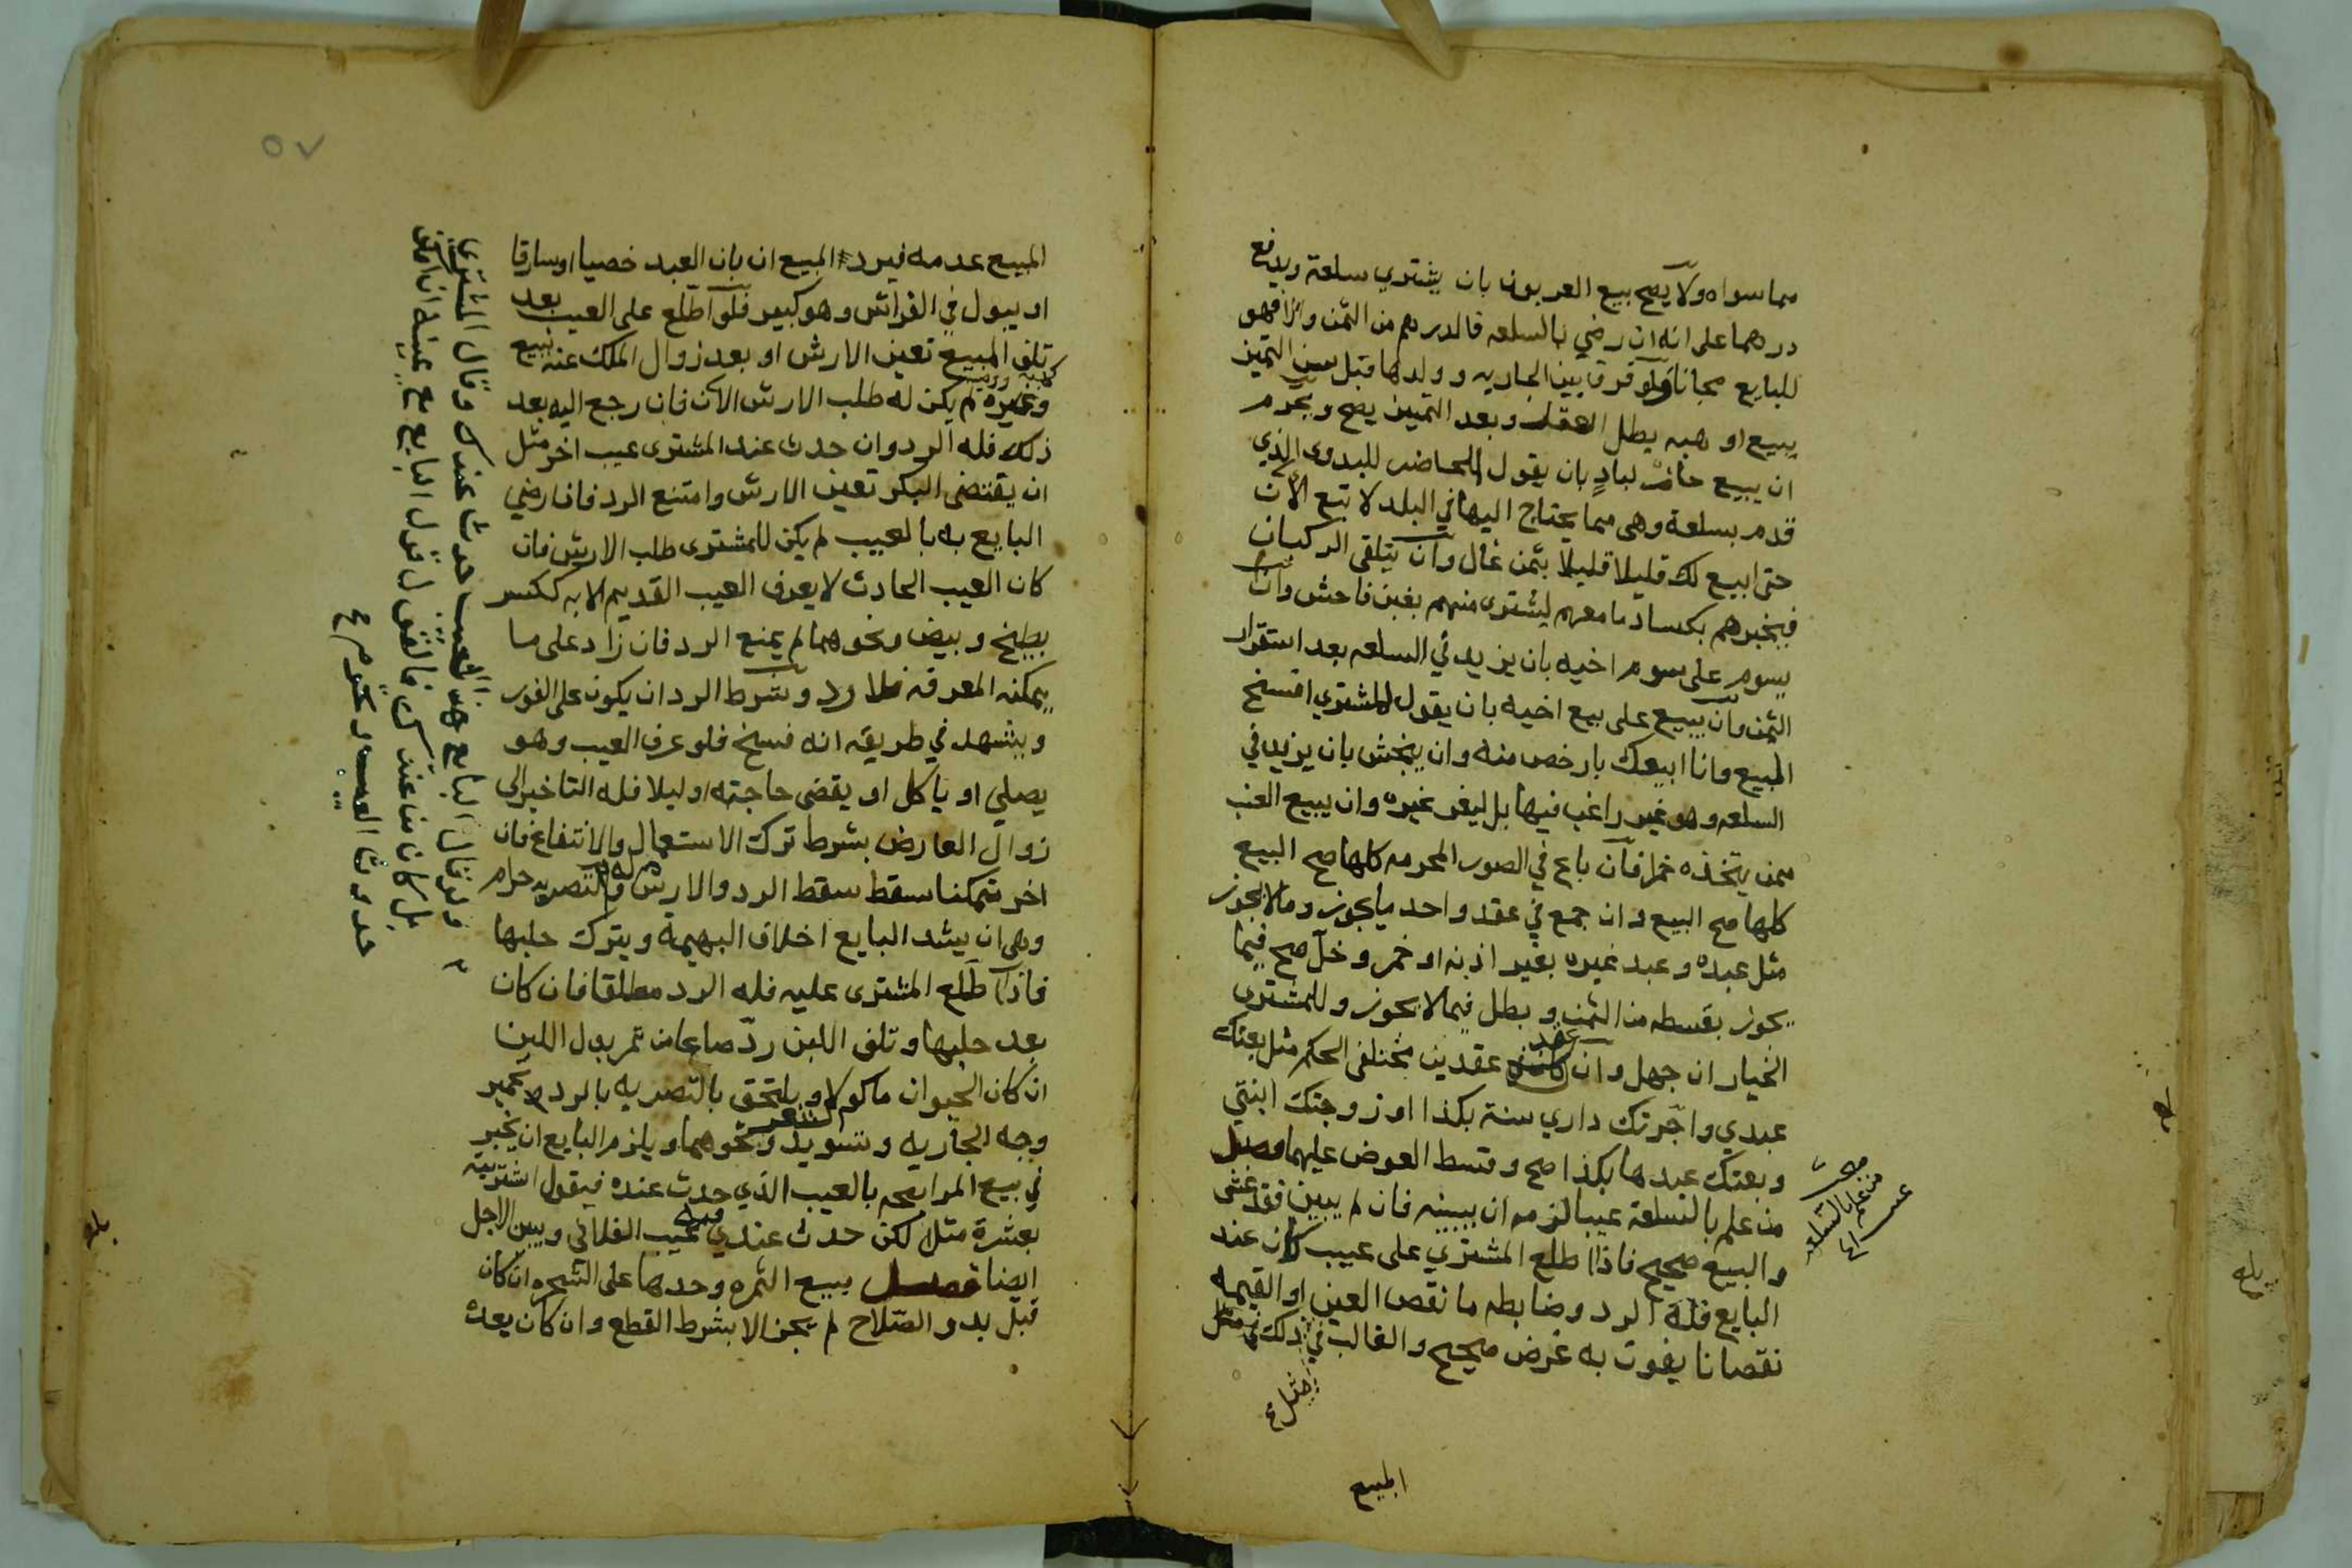 مما سواه ولا يصح بيع العربون بان يشتري سلعة ويدفع
درهما على انه ان رضي بالسلعه فالدرهم من الثمن والا فهو
للبايع مجانا ولو فرق بين الجاريه وولدها قبل سن التميز
ببيع او هبه بطل العقد وبعد التمييز يصح ويحرم
ان يبيع حاضر لبادٍ بان يقول الحاضر للبدوى الذي
قدم بسلعة وهى مما يحتاج اليها في البلد لا تبع الآن
حتى ابيع لك قليلا قليلا بثمن غال وان يتلقى الركبان
فيخبرهم بكساد ما معهم ليشترى منهم بغبن فاحش وان
يسوم على سوم اخيه بان يزيد في السلعه بعد استقرار
الثمن وان يبيع على بيع اخيه بان يقول للمشتري افسخ
المبيع وانا ابيعك بارخص منه وان ينجش بان يزيد في
السلعه وهو غير راغب فيها بل ليغر غيره وان يبيع العنب
ممن يتخذه خمرا فان باع في الصور المحرمه كلها صح البيع
كلها صح البيع وان جمع في عقد واحد ما يجوز وما لا يجوز
مثل عبده وعبد غيره بغير اذنه او خمر وخل صح فيما
يجوز بقسطه من الثمن وبطل فيما لا يجوز وللمشترى
الخيار ان جهل وان عقد عقدين مختلفى الحكم مثل بعتك
عبدي واجرتك داري سنة بكذا او زوجتك ابنتي
وبعتك عبدها بكذا صح وقسط العوض عليهما فصل
من علم بالسلعة عيبا لزمه ان يبينه فان لم يبين فقد غش
والبيع صحيح فاذا اطلع المشتري على عيب كان عند
البايع فله الرد وضابطه ما نقص العين او القيمه
نقصانا يفوت به غرض صحيح والغالب في ذلك
مثل
المبيع
مبحث
من علم بالسلعه
عيبا
٥٧
المبيع عدمه فيرد المبيع ان بان العبد خصيا او سارقا
او يبول في الفراش وهو كبير فلو اطلع على العيب بعد
تلف المبيع تعين الارش او بعد زوال الملك عنه ببيع
وغيره لم يكن له طلب الارش الآن فان رجع اليه بعد
ذلك فله الرد وان حدث عند المشترى عيب اخر مثل
ان يفتض البكر تعين الارش وامتنع الرد فان رضي
البايع به بالعيب لم يكن للمشترى طلب الارش فان
كان العيب الحادث لا يعرف العيب القديم الا به ككسر
بطيخ وبيض ونحوهما لم يمنع الرد فان زاد على ما
يمكنه المعرفه فلا رد وشرط الرد ان يكون على الفور
ويشهد في طريقه انه فسخ فلو عرف العيب وهو
يصلي او ياكل او يقضى حاجته او ليلا فله التاخير الى
زوال العارض بشرط ترك الاستعمال والانتفاع فان
اخر متمكنا سقط سقط الرد والارش والتصريه حرام
وهى ان يشد البايع اخلاف البهيمة ويترك حلبها
فاذا اطلع المشترى عليه فله الرد مطلقا فان كان
بعد حلبها وتلف اللبن ردّ صاعا من تمر بدل اللبن
ان كان الحيوان ماكولا ويلتحق بالتصريه بالرد تحمير
وجه الجاريه وتسويد الشعر ونحوهما ويلزم البايع ان يخبر
في بيع المرابحه بالعيب الذي حدث عنده فيقول اشتريته
بعشرة مثلا لكن حدث عندي فيه عيب الفلانى ويبين الاجل
ايضا فصل بيع الثمره وحدها على الشجره ان كان
قبل بدو الصّلاح لم يجز الا بشرط القطع وان كان بعده
ولو قال البايع هذا العيب حدث عندك وقال المشترى
بل كان عندك فالقول قول البايع مع يمينه ان امكن
حدوث العيب